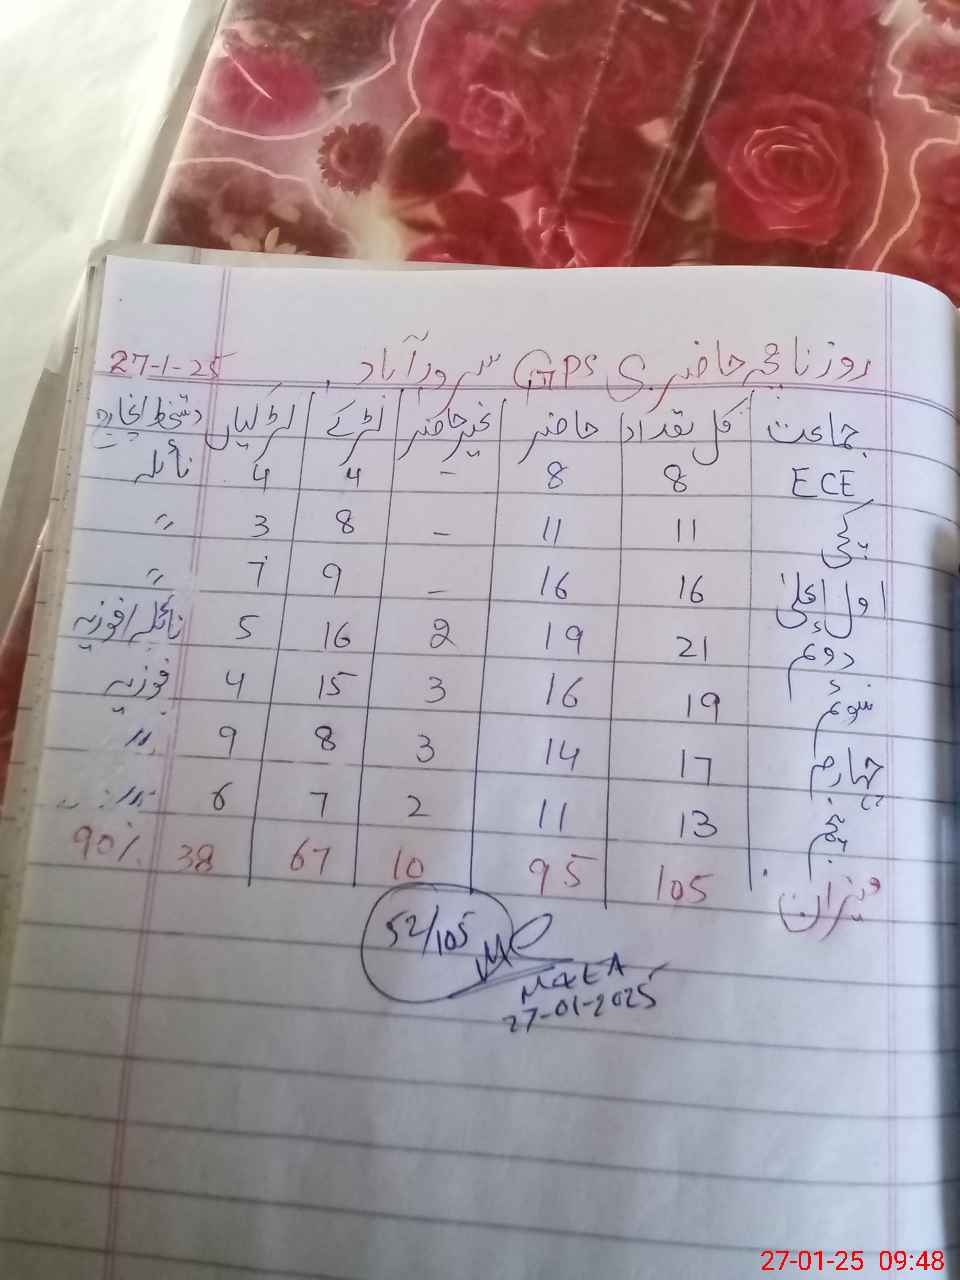 روزنامچہ حاضری GPS سرور آباد 27-1-25
جماعت کل تعداد حاضر غیر حاضر لڑکے لڑکیاں دستخط انچارج
ECE 8 8 - 4 4 نائلہ
پکی 11 11 - 8 3 〃
اول اعلیٰ 16 16 - 9 7 〃
دوئم 21 19 2 16 5 نائلہ/فوزیہ
سوئم 19 16 3 15 4 فوزیہ
چہارم 17 14 3 8 9 〃
پنجم 13 11 2 7 6 〃
میزان 105 95 10 67 38 90%
52/105
M&EA
27-01-2025
27-01-25 09:48